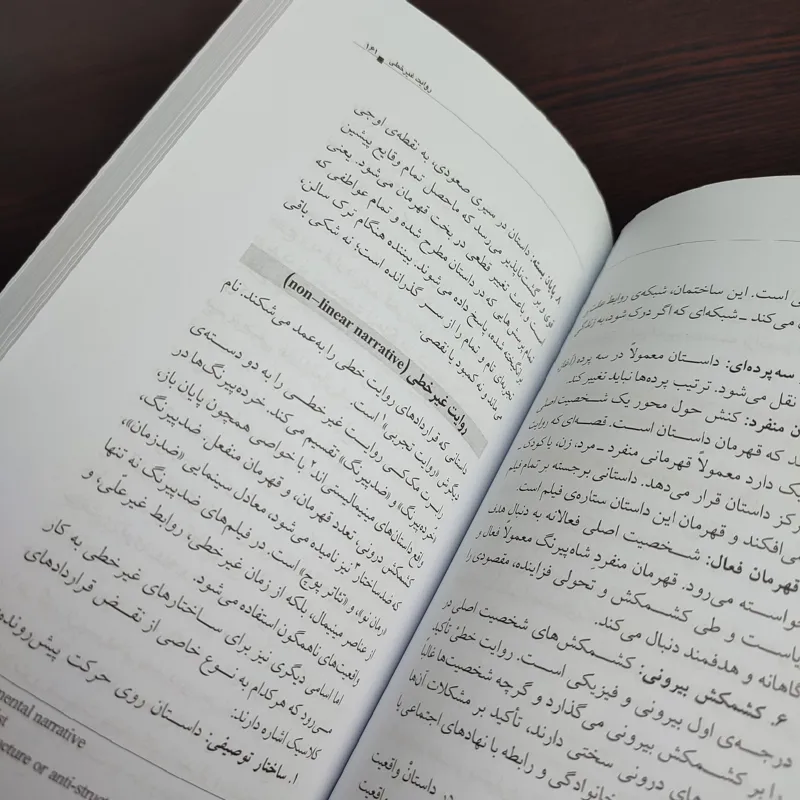 است. این ساختمان، شبکه‌ی روابط علت
می‌کند ـ شبکه‌ای که اگر درک شود، به زندگی
سه پرده‌ای: داستان معمولاً در سه پرده
نقل می‌شود. ترتیب پرده‌ها نباید تغییر کند.
منفرد: کنش حول محور یک شخصیت اصلی
که قهرمان داستان است. قصه‌ای که روایت
دارد معمولاً قهرمانی منفرد ـ مرد، زن، یا کودک ـ
مرکز داستان قرار می‌دهد. داستانی برجسته بر تمام فیلم
می‌افکند و قهرمان این داستان ستاره‌ی فیلم است.
قهرمان فعال: شخصیت اصلی فعالانه به دنبال هدف
خواسته می‌رود. قهرمان منفرد شاه‌پیرنگ معمولاً فعال و
پویاست و طی کشمکش و تحولی فزاینده، مقصودی را
آگاهانه و هدفمند دنبال می‌کند.
۶. کشمکش بیرونی: کشمکش‌های شخصیت اصلی در
درجه‌ی اول بیرونی و فیزیکی است. روایت خطی تأکید
را بر کشمکش بیرونی می‌گذارد و گرچه شخصیت‌ها غالباً
درونی سختی دارند، تأکید بر مشکلات آن‌ها
خانوادگی و رابطه با نهادهای اجتماعی یا
در داستان واقعیت
واقعیت
روایت غیرخطی ■ ۱۶۱
۸. پایان بسته: داستان در مسیری صعودی، به نقطه‌ی اوجی
قوی و برگشت‌ناپذیر می‌رسد که ماحصل تمام وقایع پیشین
است و باعث تغییر قطعی در بخت قهرمان می‌شود. یعنی
تمام پرسش‌هایی که در داستان مطرح شده و تمام عواطفی که
برانگیخته شده، پاسخ داده می‌شوند. بیننده هنگام ترک سالن،
تجربه‌ای تام و تمام را از سر گذرانده است؛ نه شکی باقی
می‌ماند و نه کمبود یا نقصی.
روایت غیرخطی (non-linear narrative)
داستانی که قراردادهای روایت خطی را به عمد می‌شکند. نام
دیگرش «روایت تجربی»۱ است.
رابرت مک‌کی روایت غیرخطی را به دو دسته‌ی
«خرده‌پیرنگ» و «ضدپیرنگ» تقسیم می‌کند. خرده‌پیرنگ‌ها در
واقع داستان‌های مینیمالیستی‌اند۲ با خواصی همچون پایان باز،
کشمکش درونی، تعدد قهرمان، و قهرمان منفعل. ضدپیرنگ،
که ضدساختار۳ نیز نامیده می‌شود، معادل سینمایی «ضدرمان»،
«رمان نو»، و «تئاتر پوچ» است. در فیلم‌های ضدپیرنگ نه تنها
از عناصر مینیمال، بلکه از زمان غیرخطی، روابط غیرعلّی، و
واقعیت‌های ناهمگون استفاده می‌شود.
اما اسامی دیگری نیز برای ساختارهای غیرخطی به کار
می‌رود که هرکدام به نوع خاصی از نقض قراردادهای
کلاسیک اشاره دارند:
۱. ساختار توصیفی: داستان روی حرکت پیش‌رونده
mental narrative
ist
cture or anti-struct